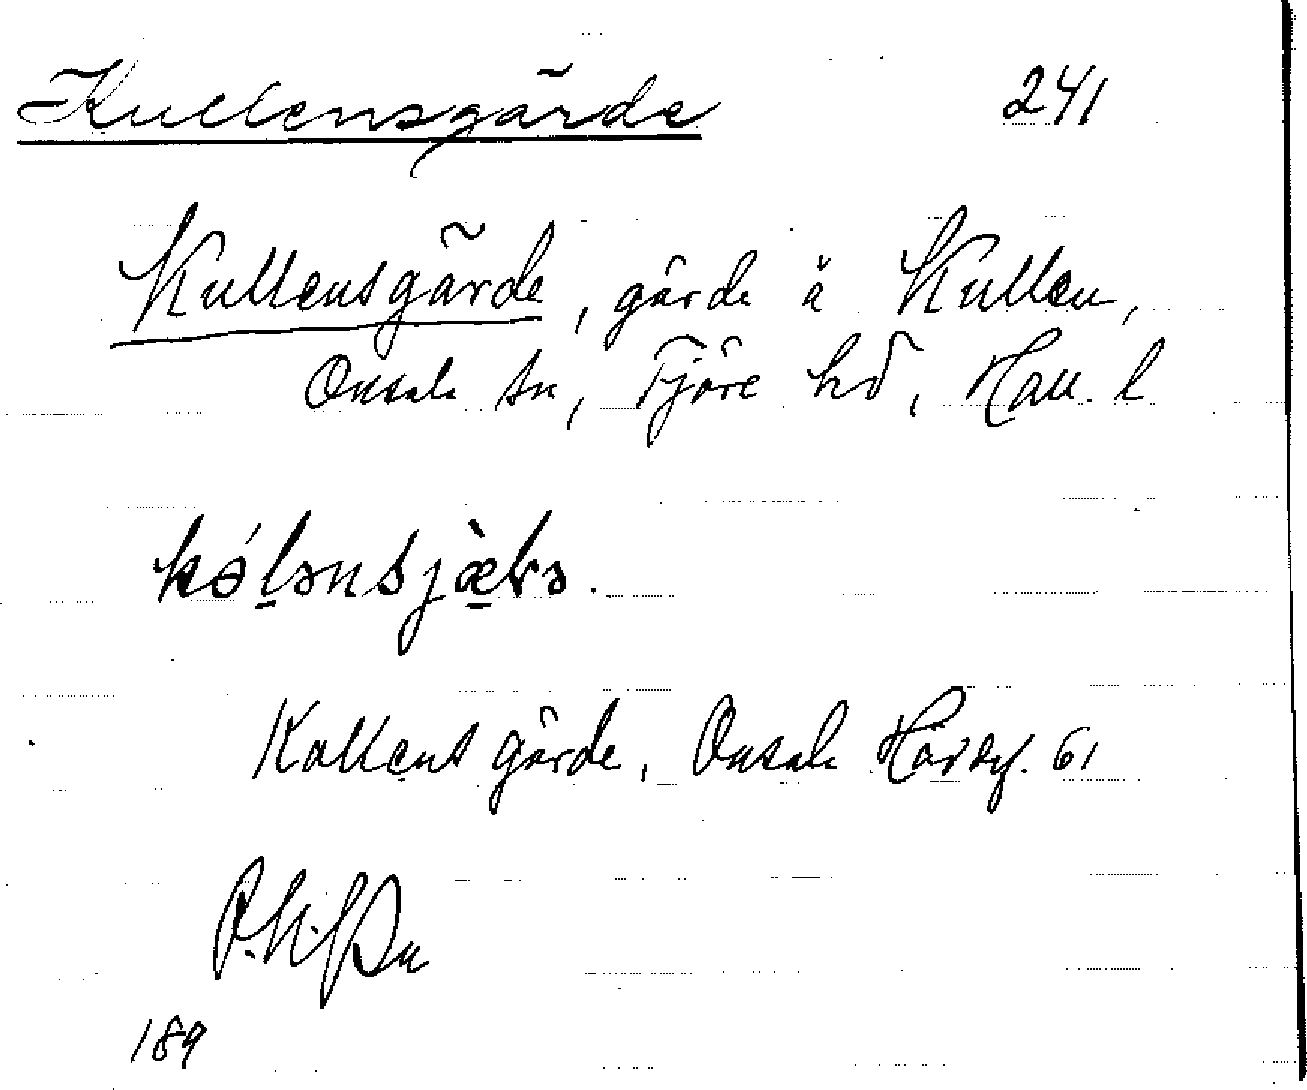 Kullensgärde 241
Kullensgärde, gärde å Kullen,
Onsala sn, Fjäre hd, Hall. l
kó̀lənsjæ̀rə.
Kollens gärde, Onsala Hörsef. 61
P.N.Pn
189